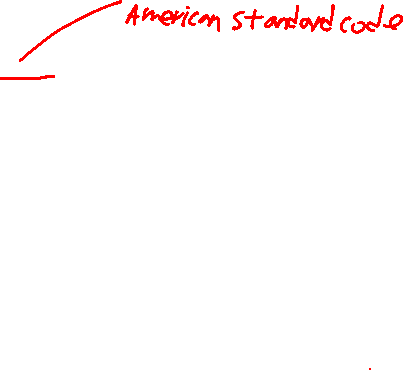 American standard code